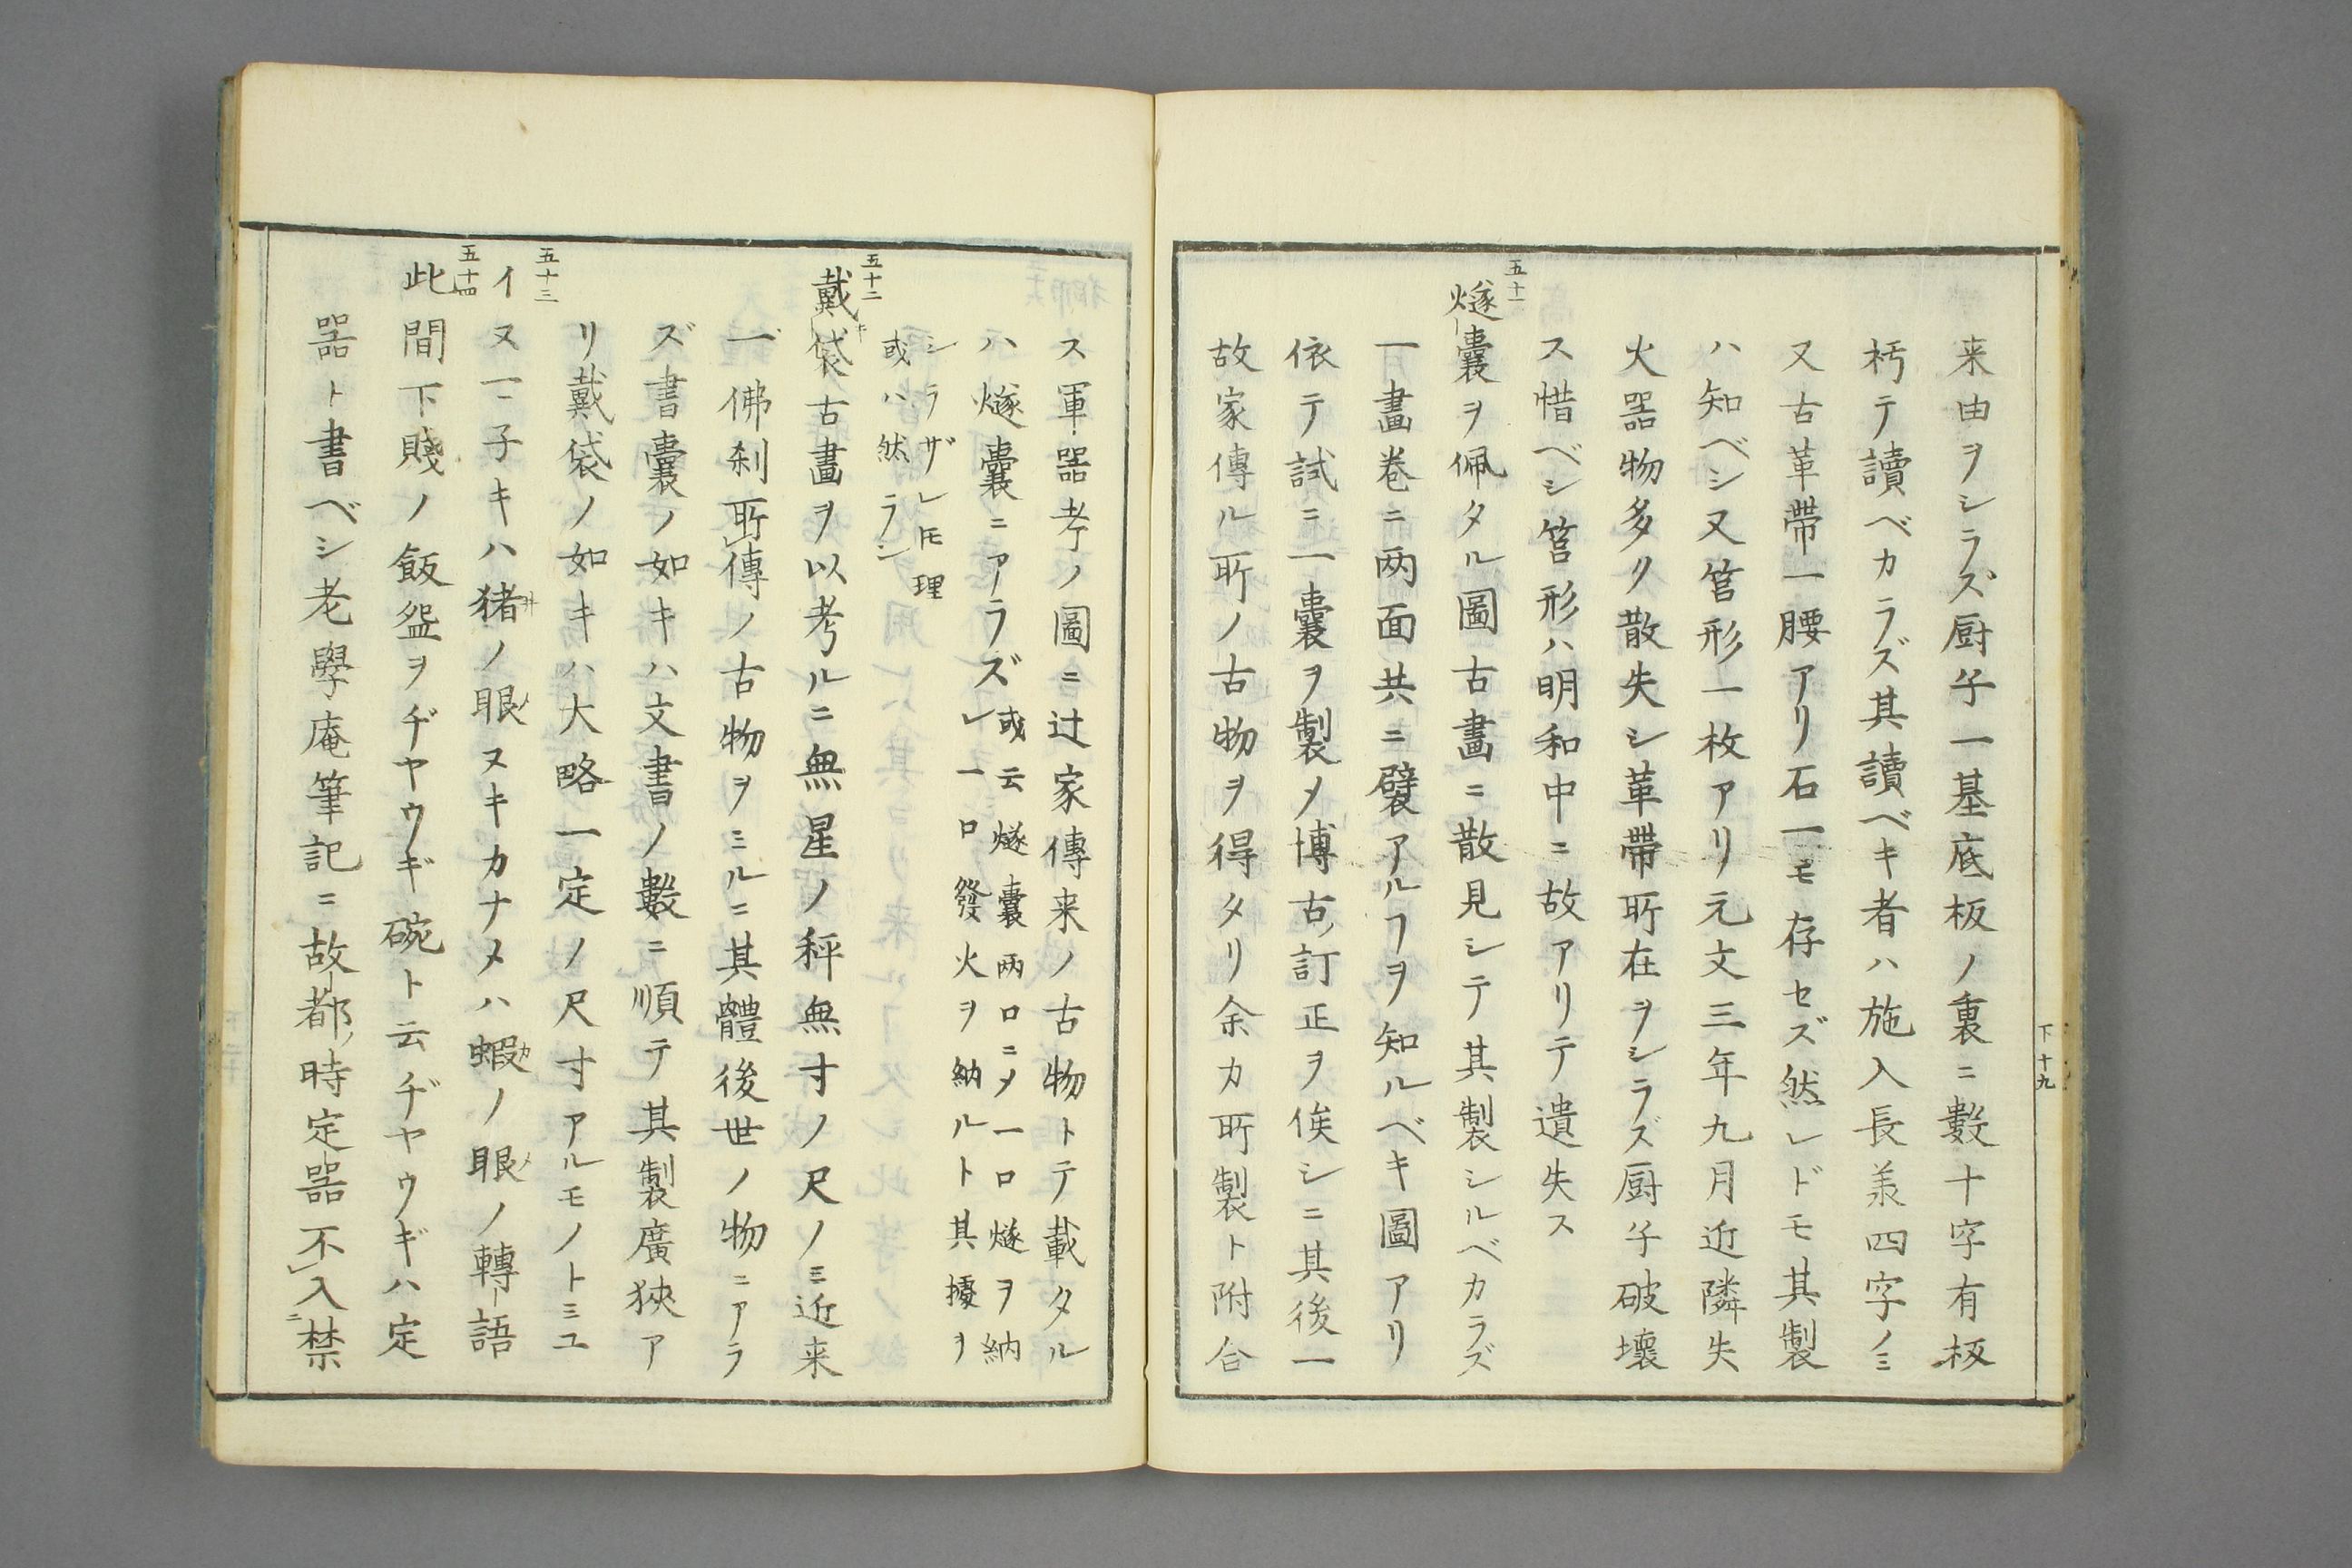 来由ヲシラズ厨子一基底板ノ裏ニ數十字有板
朽テ讀ベカラズ其讀ベキ者ハ施入長兼四字ノミ
又古革帶一腰アリ石一モ存セズ然レドモ其製
ハ知ベシ又筥形一枚アリ元文三年九月近隣失
火噐物多ク散失シ革帶所在ヲシラズ厨子破壞
ス惜ベシ筥形ハ明和中ニ故アリテ遺失ス
五十一
燧囊ヲ佩タル圖古畫ニ散見シテ其製シルベカラズ
一畫巻ニ两面共ニ襞アルヿヲ知ルベキ圖アリ
依テ試ニ一囊ヲ製メ博古訂正ヲ俟シニ其後一
故家傳ル所ノ古物ヲ得タリ余カ所製ト附合
下十九
ス軍噐考ノ圖ニ辻家傳来ノ古物トテ載タル
ハ燧囊ニアラズ
或云燧囊两口ニメ一口燧ヲ納
レ一口發火ヲ納ルト其據ヲ
シラザレ𪜈理
或ハ然ラン
五十二
戴袋古畫ヲ以考ルニ無星ノ秤無寸ノ尺ノミ近来
一佛刹所傳ノ古物ヲミルニ其體後世ノ物ニアラ
ズ書囊ノ如キハ文書ノ數ニ順テ其製廣狹ア
リ戴袋ノ如キハ大略一定ノ尺寸アルモノトミユ
五十三
イヌ一子キハ猪ノ眼ヌキカナメハ蝦ノ眼ノ轉語
五十四
此間下賤ノ飯盌ヲヂヤウギ碗ト云ヂヤウギハ定
噐ト書ベシ老學庵筆記ニ故都時定噐不入禁